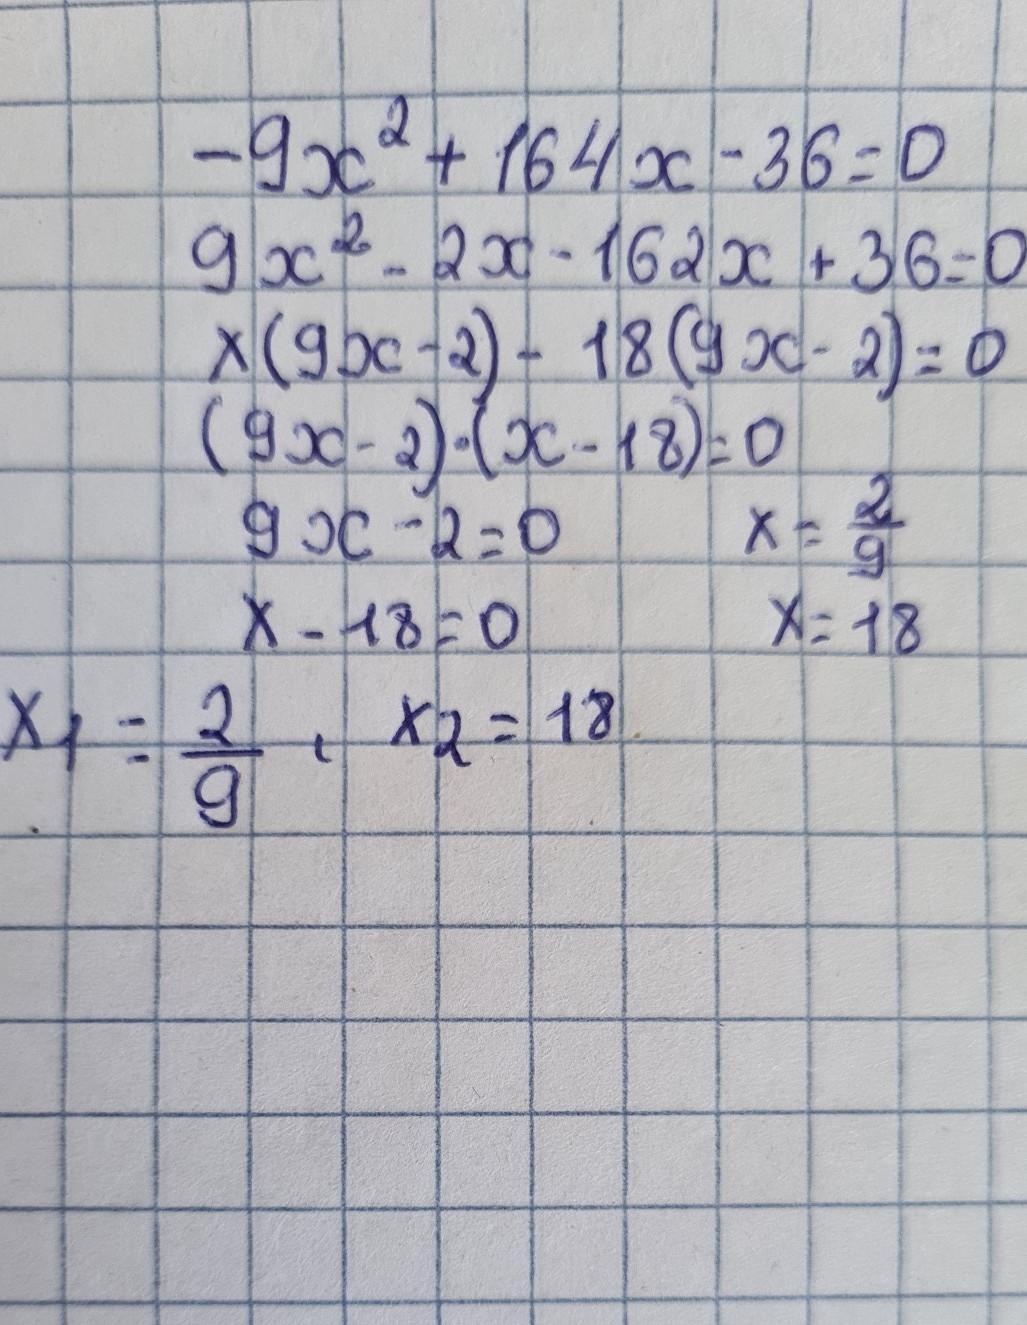 -9x² + 164x - 36 = 0
9x² - 2x - 162x + 36 = 0
x(9x - 2) - 18(9x - 2) = 0
(9x - 2)·(x - 18) = 0
9x - 2 = 0 x = 2/9
x - 18 = 0 x = 18
x₁ = 2/9 , x₂ = 18